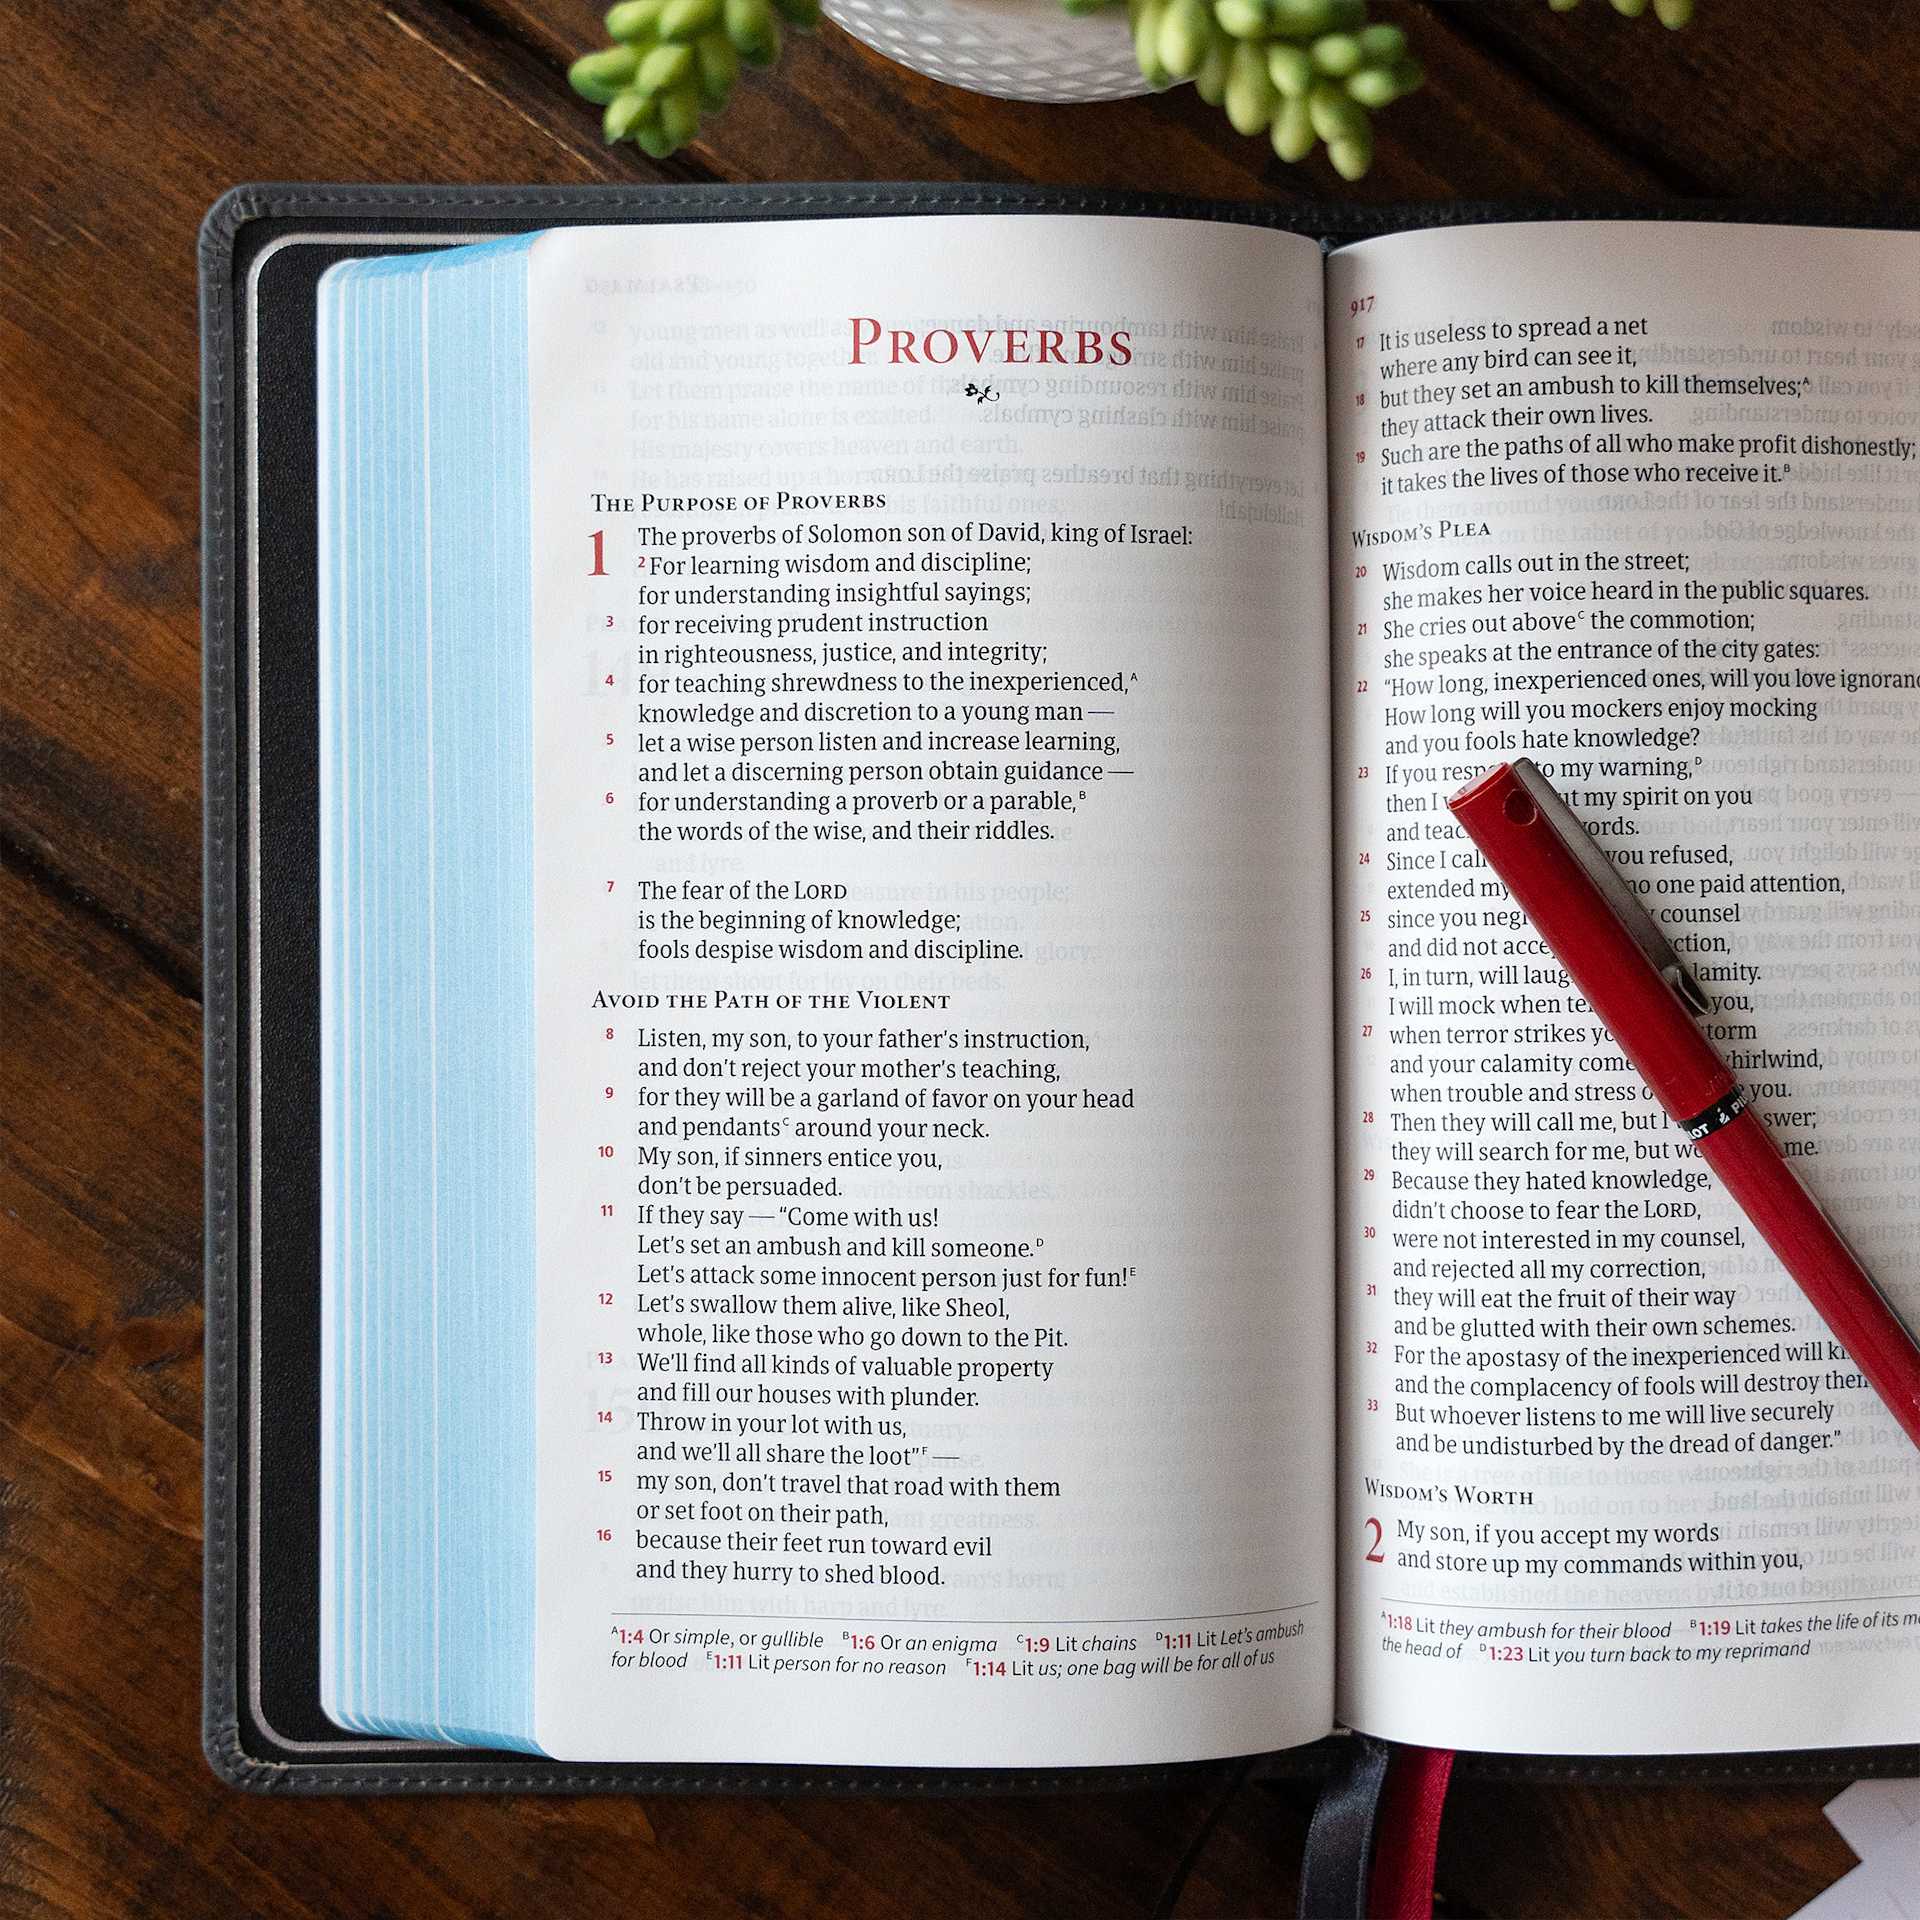 PROVERBS
THE PURPOSE OF PROVERBS
1 The proverbs of Solomon son of David, king of Israel:
2 For learning wisdom and discipline;
for understanding insightful sayings;
3 for receiving prudent instruction
in righteousness, justice, and integrity;
4 for teaching shrewdness to the inexperienced,A
knowledge and discretion to a young man —
5 let a wise person listen and increase learning,
and let a discerning person obtain guidance —
6 for understanding a proverb or a parable,B
the words of the wise, and their riddles.
7 The fear of the LORD
is the beginning of knowledge;
fools despise wisdom and discipline.
AVOID THE PATH OF THE VIOLENT
8 Listen, my son, to your father's instruction,
and don't reject your mother's teaching,
9 for they will be a garland of favor on your head
and pendantsC around your neck.
10 My son, if sinners entice you,
don't be persuaded.
11 If they say — “Come with us!
Let's set an ambush and kill someone.D
Let's attack some innocent person just for fun!E
12 Let's swallow them alive, like Sheol,
whole, like those who go down to the Pit.
13 We'll find all kinds of valuable property
and fill our houses with plunder.
14 Throw in your lot with us,
and we'll all share the loot”F —
15 my son, don't travel that road with them
or set foot on their path,
16 because their feet run toward evil
and they hurry to shed blood.
A1:4 Or simple, or gullible B1:6 Or an enigma C1:9 Lit chains D1:11 Lit Let's ambush
for blood E1:11 Lit person for no reason F1:14 Lit us; one bag will be for all of us
917
17 It is useless to spread a net
where any bird can see it,
18 but they set an ambush to kill themselves;A
they attack their own lives.
19 Such are the paths of all who make profit dishonestly;
it takes the lives of those who receive it.B
WISDOM'S PLEA
20 Wisdom calls out in the street;
she makes her voice heard in the public squares.
21 She cries out aboveC the commotion;
she speaks at the entrance of the city gates:
22 “How long, inexperienced ones, will you love
How long will you mockers enjoy mocking
and you fools hate knowledge?
23 If you to my warning,D
then I my spirit on you
and
24 Since I you refused,
extended my no one paid attention,
25 since you counsel
and did not
26 I, in turn, will
I will mock when you,
27 when terror strikes
and your calamity whirlwind,
when trouble and stress you.
28 Then they will call me, but I
they will search for me, but me.
29 Because they hated knowledge,
didn't choose to fear the LORD,
30 were not interested in my counsel,
and rejected all my correction,
31 they will eat the fruit of their way
and be glutted with their own schemes.
32 For the apostasy of the inexperienced will
and the complacency of fools will destroy
33 But whoever listens to me will live securely
and be undisturbed by the dread of danger.”
WISDOM'S WORTH
2 My son, if you accept my words
and store up my commands within you,
A1:18 Lit they ambush for their blood B1:19 Lit takes the life of its
the head of D1:23 Lit you turn back to my reprimand